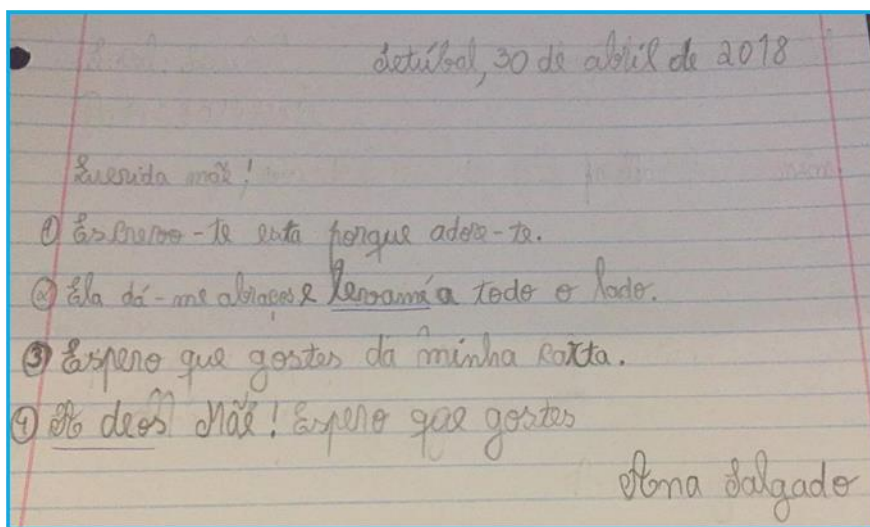 Setúbal, 30 de abril de 2018
Querida mãe!
① Escrevo-te esta porque adoro-te.
② Ela dá-me abraços e levamá a todo o lado.
③ Espero que gostes da minha carta.
④ A deos Mãe! Espero que gostes
Ana Salgado